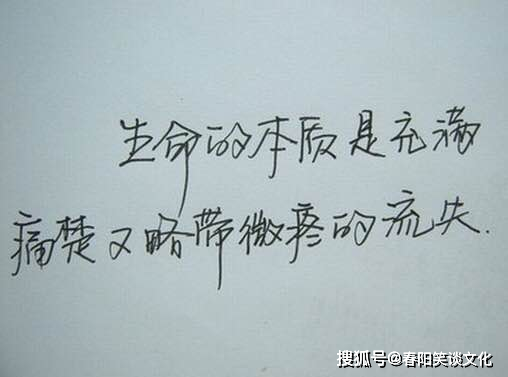 生命的本质是充满
痛楚又略带微疼的流失.
搜狐号@春阳笑谈文化